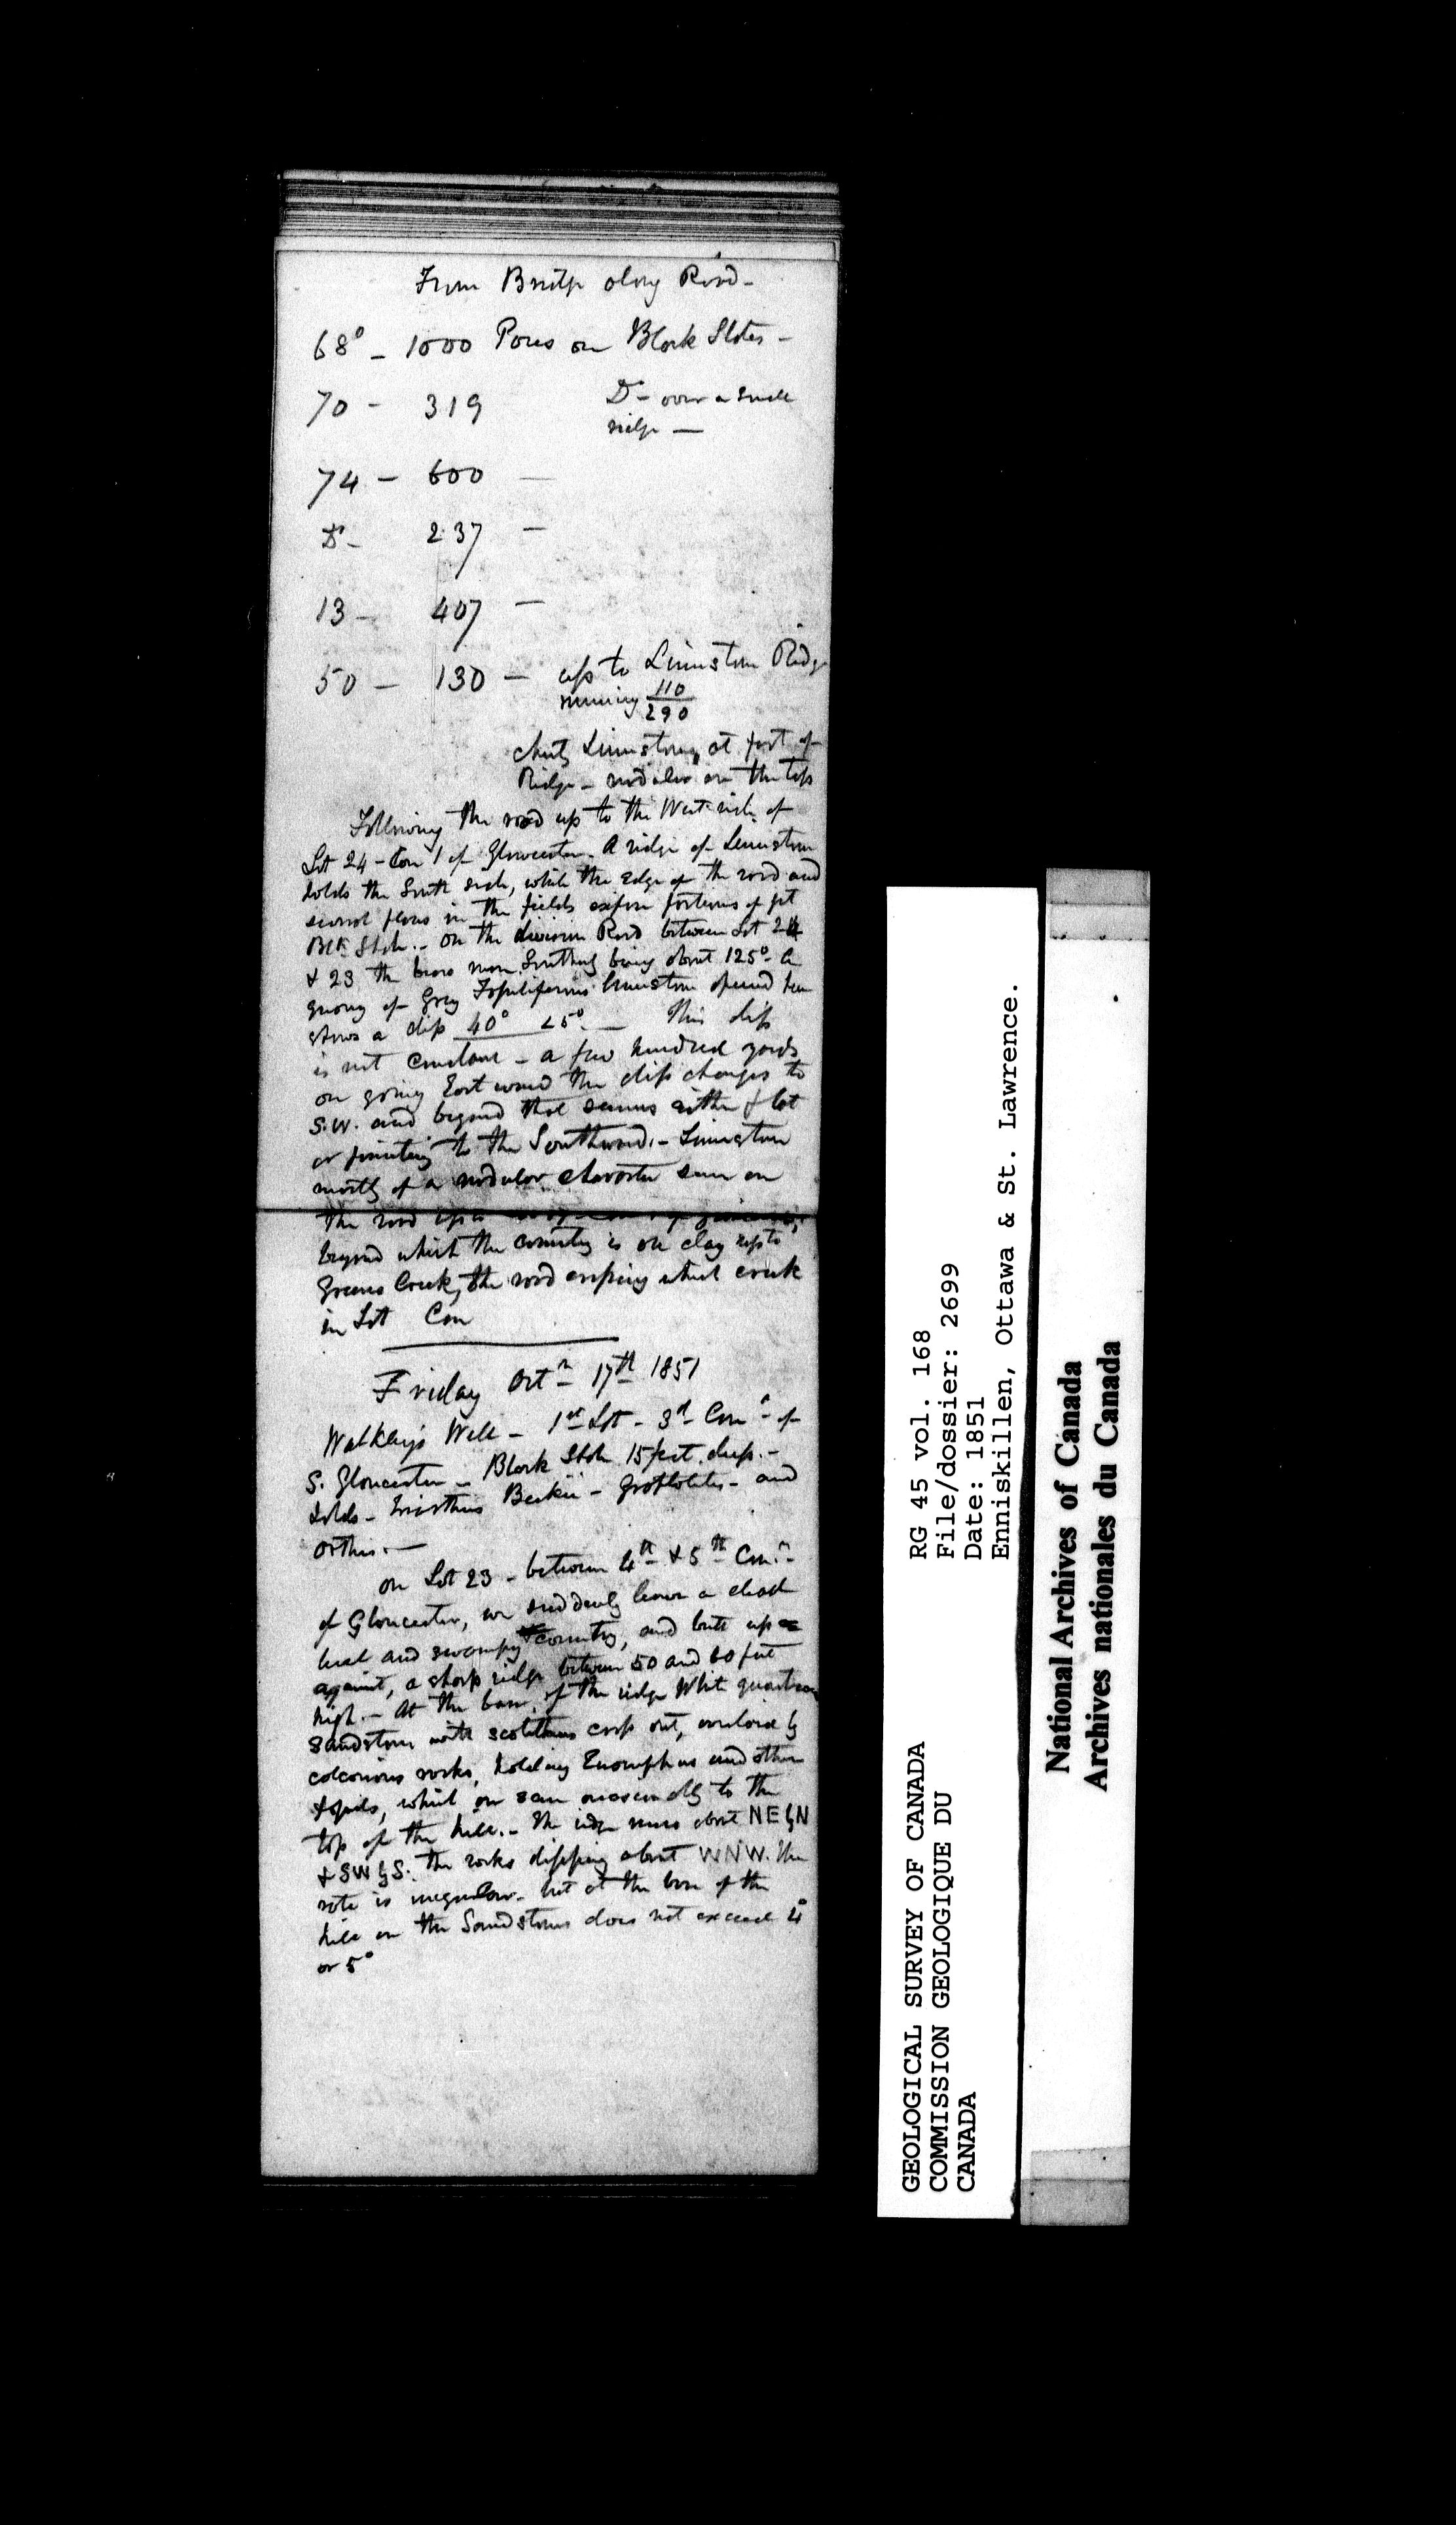 From Bridge along Road -
68° - 1000 Paces on Black Slates -
70 - 319 Do - over a small
ridge —
74 - 600 —
Do - 237 —
13 - 407 —
50 - 130 - up to Limestone Ridge
running 110
290
Limestone, at foot of
Ridge - nodular on the top
Following the road up to the West side of
Lot 24 - Con 1 of Gloucester. A ridge of Limestone
holds the South side, while the edge of the road and
several places in the fields expose portions of jet
Blk Slate. - On the division Road between Lot 24
& 23 the brow more Southerly being about 125° - A
quarry of Grey Fossiliferous limestone opened here
shows a dip 40° < 5° — This dip
is not constant - a few hundred yards
on going Eastward the dip changes to
S.W. and beyond that seems either flat
or pointing to the Southward. - Limestone
mostly of a nodular character seen on
the road
beyond which the country is on clay up to
Greens Creek, the road crossing which creek
in Lot Con
Friday Octr 17th 1851
Walkley's Well - 1st Lot - 3rd Con. of
S. Gloucester - Black Slate 15 feet deep. -
holds - Beckii - Graptolites - and
Orthis. —
On Lot 23 - between 4th & 5th Con.
of Gloucester, we suddenly leave a dead
level and swampy country, and butt up
against, a sharp ridge between 50 and 60 feet
high. - At the base of the ridge White quartzose
Sandstone with scolithus crop out, overlaid by
calcareous rocks, holding Euomphalus and other
fossils, which are seen occasionally to the
top of the hill. - The ridge runs about NE by N
& SW by S. the rocks dipping about WNW. The
rate is irregular - but at the base of the
hill on the Sandstones does not exceed 4°
or 5°
GEOLOGICAL SURVEY OF CANADA
COMMISSION GEOLOGIQUE DU
CANADA
RG 45 vol. 168
File/dossier: 2699
Date: 1851
Enniskillen, Ottawa & St. Lawrence.
National Archives of Canada
Archives nationales du Canada